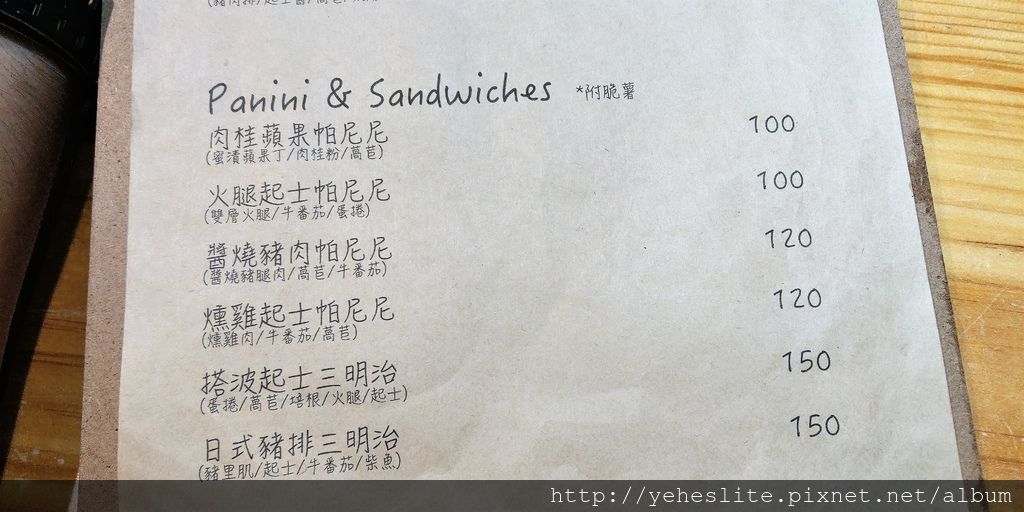 Panini & Sandwiches *附脆薯
肉桂蘋果帕尼尼 100
(蜜漬蘋果丁/肉桂粉/萵苣)
火腿起士帕尼尼 100
(雙層火腿/牛番茄/蛋捲)
醬燒豬肉帕尼尼 120
(醬燒豬腿肉/萵苣/牛番茄)
燻雞起士帕尼尼 120
(燻雞肉/牛番茄/萵苣)
搭波起士三明治 150
(蛋捲/萵苣/培根/火腿/起士)
日式豬排三明治 150
(豬里肌/起士/牛番茄/柴魚)
http://yeheslite.pixnet.net/album